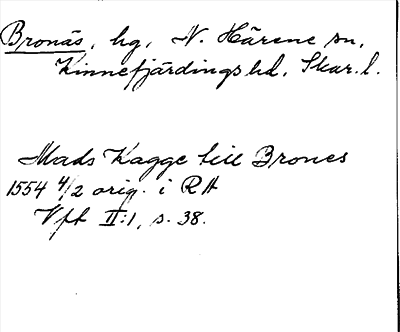 Bronäs, hg, N. Härene sn,
Kinnefjärdings hd, Skar. l.
Mads Kagge till Brones
1554 4/2 orig. i RA
Vft II:1, s. 38.